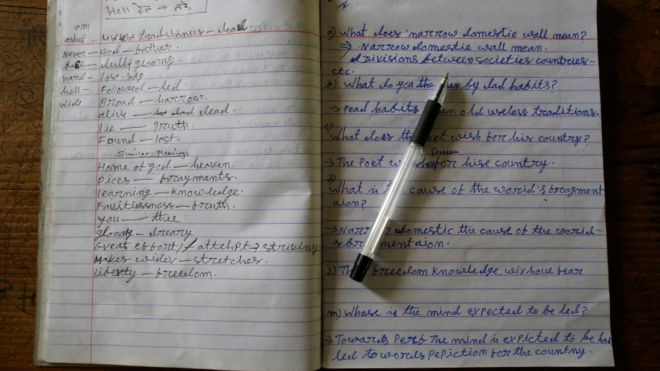 Hell हैल → नर्क
om
useless traditions — dead
Never
God — father
dully gloomy
hard — lose-big
hell — Followed — led
wide Broad — narrow.
alive — dead.
Lie — Truth.
Found — lost.
Similar Meanings
Home of god — heaven.
Pices — fragments.
Learning — knowledge.
Faultlessness — truth.
you — thee
gloomy — dreary
Great effort / attempt → striving
Makes wider — stretches.
Liberty — freedom.
a) What does 'narrow domestic wall mean?
⇒ Narrow domestic wall mean.
divisions between societies countries-
etc.
b) What do you the by dad habits?
→ Dead habits an old useless traditions.
What does the poet wish for his country?
→ The Poet for hise country.
What is the cause of the world's fragment
ation?
→ Narrow domestic the cause of the world-
s fragmentation.
freedom knowledge, wixhout fear
m) Whose is the mind expected to be led?
→ Towards Perf The mind is expicted to be
led to words pepiction for the country.